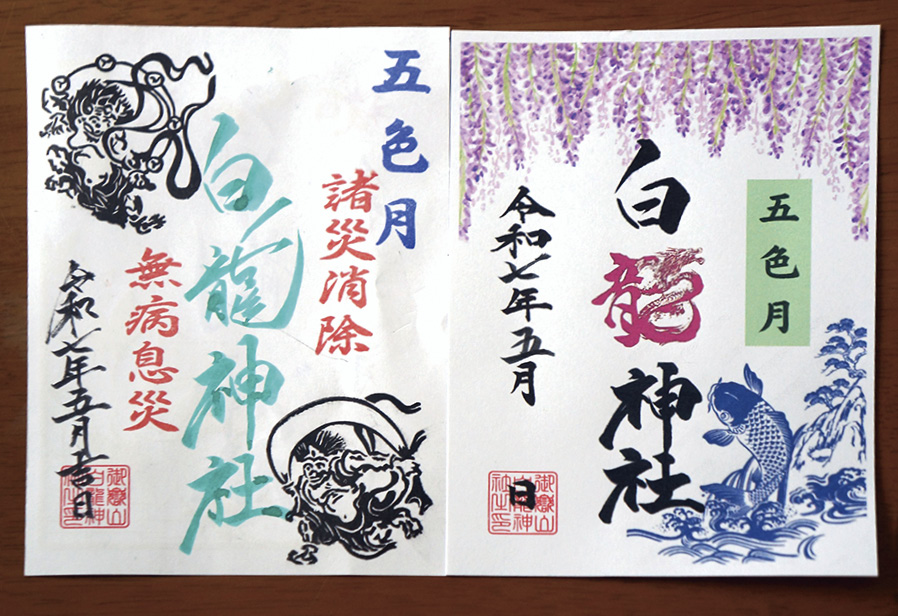 五色月
諸災消除
白龍神社
無病息災
令和七年五月吉日
御嶽山
白龍神
社之印
五色月
白龍神社
令和七年五月
日
御嶽山
白龍神
社之印